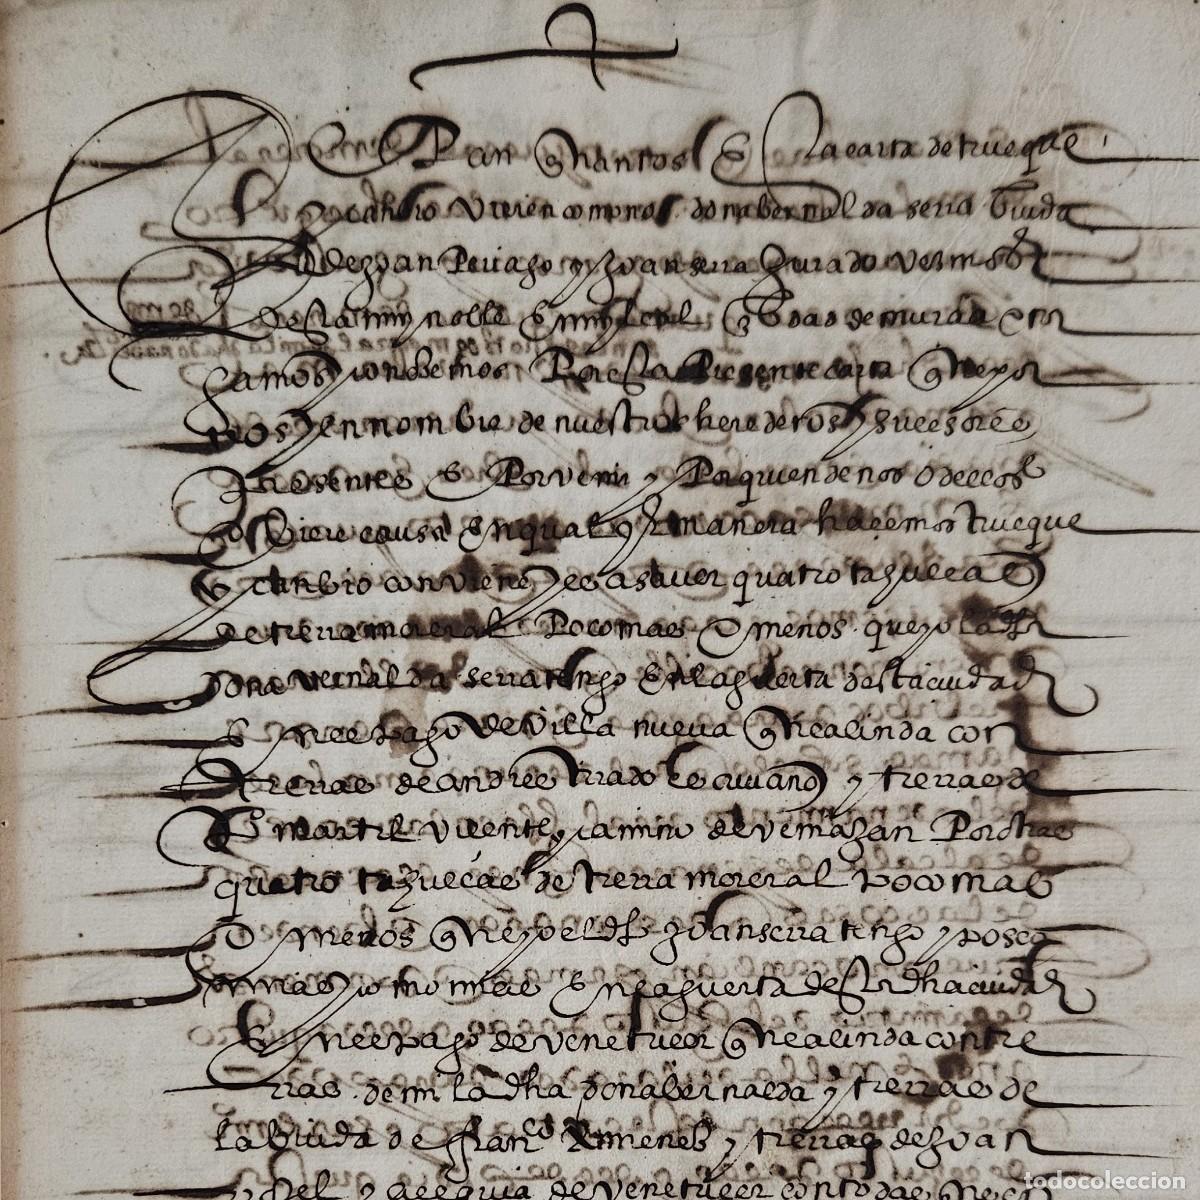 Sepan quantos esta carta de trueque
y canbio vieren como nos dona bernalda serra biuda
de joan Periago y joan serra Jurado vezinos
desta muy noble e muy leal cibdad de murcia otor
gamos y conosemos Por esta Presente carta que por
nos y en nombre de nuestros herederos y susesores
Presentes e Por venir y Por quien de nos o dellos
obiere causa en qualqr manera hazemos trueque
y canbio conviene ee a saver quatro tahullas
de tierra moreral Poco mas o menos que yo la dha
dona vernalda serra tengo en la guerta desta ciudad
en el pago de villa nueva que alinda con
tierras de andres tirado escrivano y tierras de
martil vicente y camino de vemazan Por otras
quatro tahullas de tierra moreral poco mas
o menos que yo el dho joan serra tengo y poseo
mias como mias en la guerta desta dha ciudad
en el pago de venetucer que alinda con tie
rras de mi la dha dona bernalda y tierras de
la biuda de franco ximenes y tierras de joan
y acequia de venetucer con todas
todocoleccion